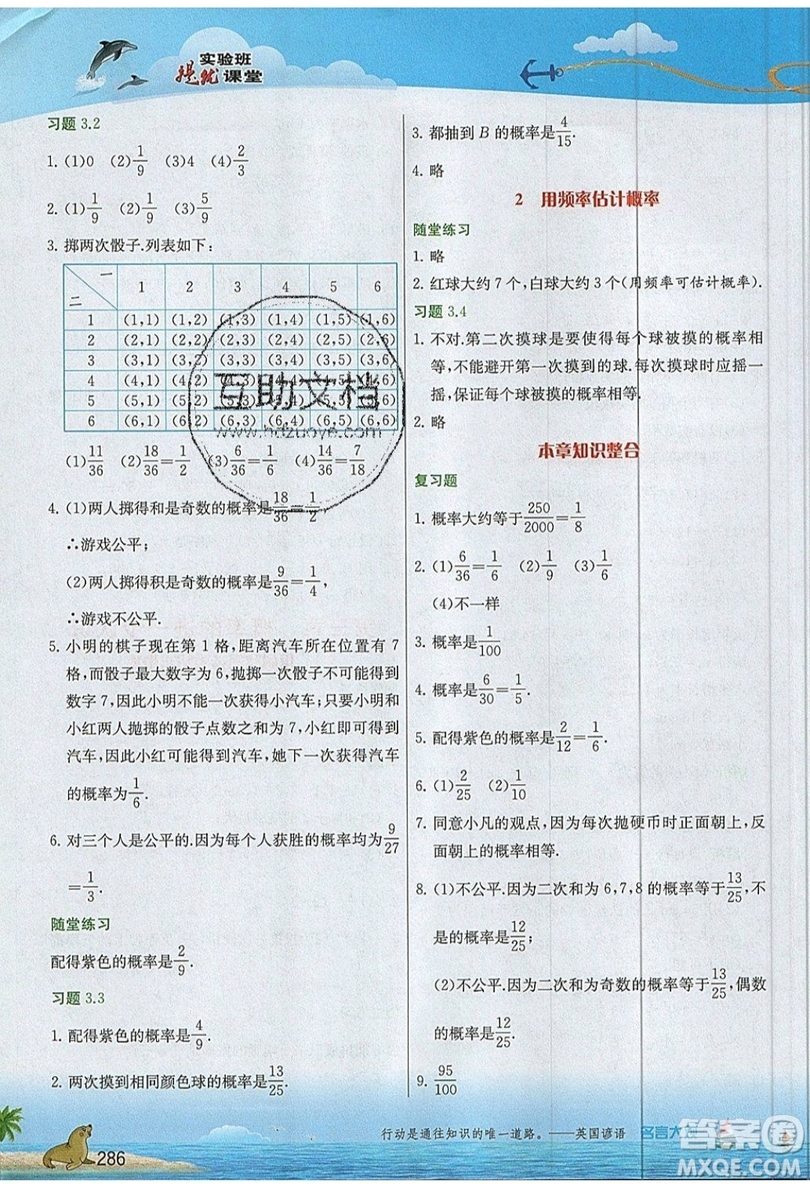 实验班
提优课堂
习题 3.2
1. (1)0 (2)1/9 (3)4 (4)2/3
2. (1)1/9 (2)1/9 (3)5/9
3. 掷两次骰子.列表如下:
一
二 1 2 3 4 5 6
1 (1,1) (1,2) (1,3) (1,4) (1,5) (1,6)
2 (2,1) (2,2) (2,3) (2,4) (2,5) (2,6)
3 (3,1) (3,2) (3,3) (3,4) (3,5) (3,6)
4 (4,1) (4,2) (4,3) (4,4) (4,5) (4,6)
5 (5,1) (5,2) (5,3) (5,4) (5,5) (5,6)
6 (6,1) (6,2) (6,3) (6,4) (6,5) (6,6)
(1)11/36 (2)18/36=1/2 (3)6/36=1/6 (4)14/36=7/18
4. (1)两人掷得和是奇数的概率是18/36=1/2
∴游戏公平;
(2)两人掷得积是奇数的概率是9/36=1/4,
∴游戏不公平.
5. 小明的棋子现在第 1 格,距离汽车所在位置有 7
格,而骰子最大数字为 6,抛掷一次骰子不可能得到
数字 7,因此小明不能一次获得小汽车;只要小明和
小红两人抛掷的骰子点数之和为 7,小红即可得到
汽车,因此小红可能获得汽车,她下一次获得汽车
的概率为1/6.
6. 对三个人是公平的.因为每个人获胜的概率均为9/27
=1/3.
随堂练习
配得紫色的概率是2/9.
习题 3.3
1. 配得紫色的概率是4/9.
2. 两次摸到相同颜色球的概率是1/2.
3. 都抽到 B 的概率是4/15.
4. 略
2 用频率估计概率
随堂练习
1. 略
2. 红球大约 7 个,白球大约 3 个(用频率可估计概率).
习题 3.4
1. 不对.第二次摸球是要使得每个球被摸的概率相
等,不能避开第一次摸到的球.每次摸球时应摇一
摇,保证每个球被摸的概率相等.
2. 略
本章知识整合
复习题
1. 概率大约等于250/2000=1/8
2. (1)6/36=1/6 (2)1/9 (3)1/6
(4)不一样
3. 概率是1/100
4. 概率是6/30=1/5.
5. 配得紫色的概率是2/12=1/6.
6. (1)2/25 (2)1/10
7. 同意小凡的观点,因为每次抛硬币时正面朝上,反
面朝上的概率相等.
8. (1)不公平.因为二次和为 6,7,8 的概率等于13/25,不
是的概率是12/25;
(2)不公平.因为二次和为奇数的概率等于13/25,偶数
的概率等于12/25.
9. 95/100
互助文档
www.hdzuoye.com
行动是通往知识的唯一道路。——英国谚语
名言大
286
答案圈
MXQE.COM